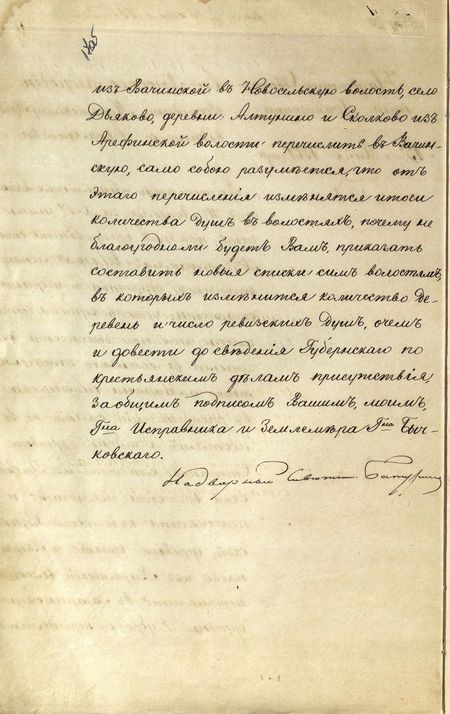 изъ Вачинской въ Новосельскую волость, село
Дьяково, деревни: Алтунино и Сколково изъ
Арефинской волости перечислить въ Вачин-
скую, само собою разумѣется, что отъ
этаго перечисленія измѣнятся итоги
количества душъ въ волостяхъ, почему не
благоугодноли будетъ Вамъ, приказать
составить новыя списки симъ волостямъ,
въ которыхъ измѣнится количество де-
ревень и число ревизскихъ душъ, о чемъ
и довести до свѣденія Губернскаго по
крестьянскимъ дѣламъ присутствія,
за общимъ подписомъ Вашимъ, моимъ,
Гна Исправника и Землемѣра Гна Быч-
ковскаго.
Надворный Совѣтник